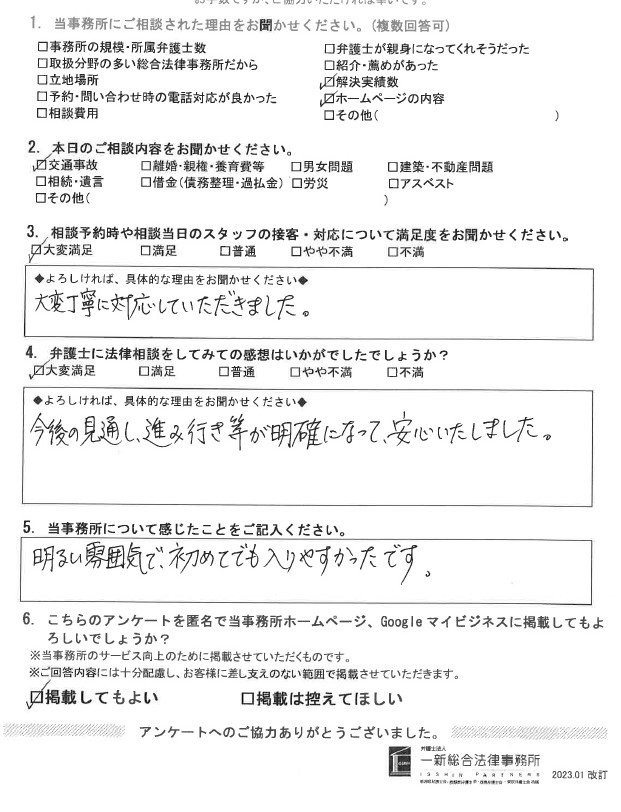 お手数ですが、ご協力いただければ幸いです。
1. 当事務所にご相談された理由をお聞かせください。(複数回答可)
□事務所の規模・所属弁護士数 □弁護士が親身になってくれそうだった
□取扱分野の多い総合法律事務所だから □紹介・薦めがあった
□立地場所 ☑解決実績数
□予約・問い合わせ時の電話対応が良かった ☑ホームページの内容
□相談費用 □その他( )
2. 本日のご相談内容をお聞かせください。
☑交通事故 □離婚・親権・養育費等 □男女問題 □建築・不動産問題
□相続・遺言 □借金(債務整理・過払金) □労災 □アスベスト
□その他( )
3. 相談予約時や相談当日のスタッフの接客・対応について満足度をお聞かせください。
☑大変満足 □満足 □普通 □やや不満 □不満
◆よろしければ、具体的な理由をお聞かせください◆
大変丁寧に対応していただきました。
4. 弁護士に法律相談をしてみての感想はいかがでしたでしょうか?
☑大変満足 □満足 □普通 □やや不満 □不満
◆よろしければ、具体的な理由をお聞かせください◆
今後の見通し、進み行き等が明確になって、安心いたしました。
5. 当事務所について感じたことをご記入ください。
明るい雰囲気で、初めてでも入りやすかったです。
6. こちらのアンケートを匿名で当事務所ホームページ、Googleマイビジネスに掲載してもよ
ろしいでしょうか?
※当事務所のサービス向上のために掲載させていただくものです。
※ご回答内容には十分配慮し、お客様に差し支えのない範囲で掲載させていただきます。
☑掲載してもよい □掲載は控えてほしい
アンケートへのご協力ありがとうございました。
弁護士法人
一新総合法律事務所
ISSHIN PARTNERS
2023.01 改訂